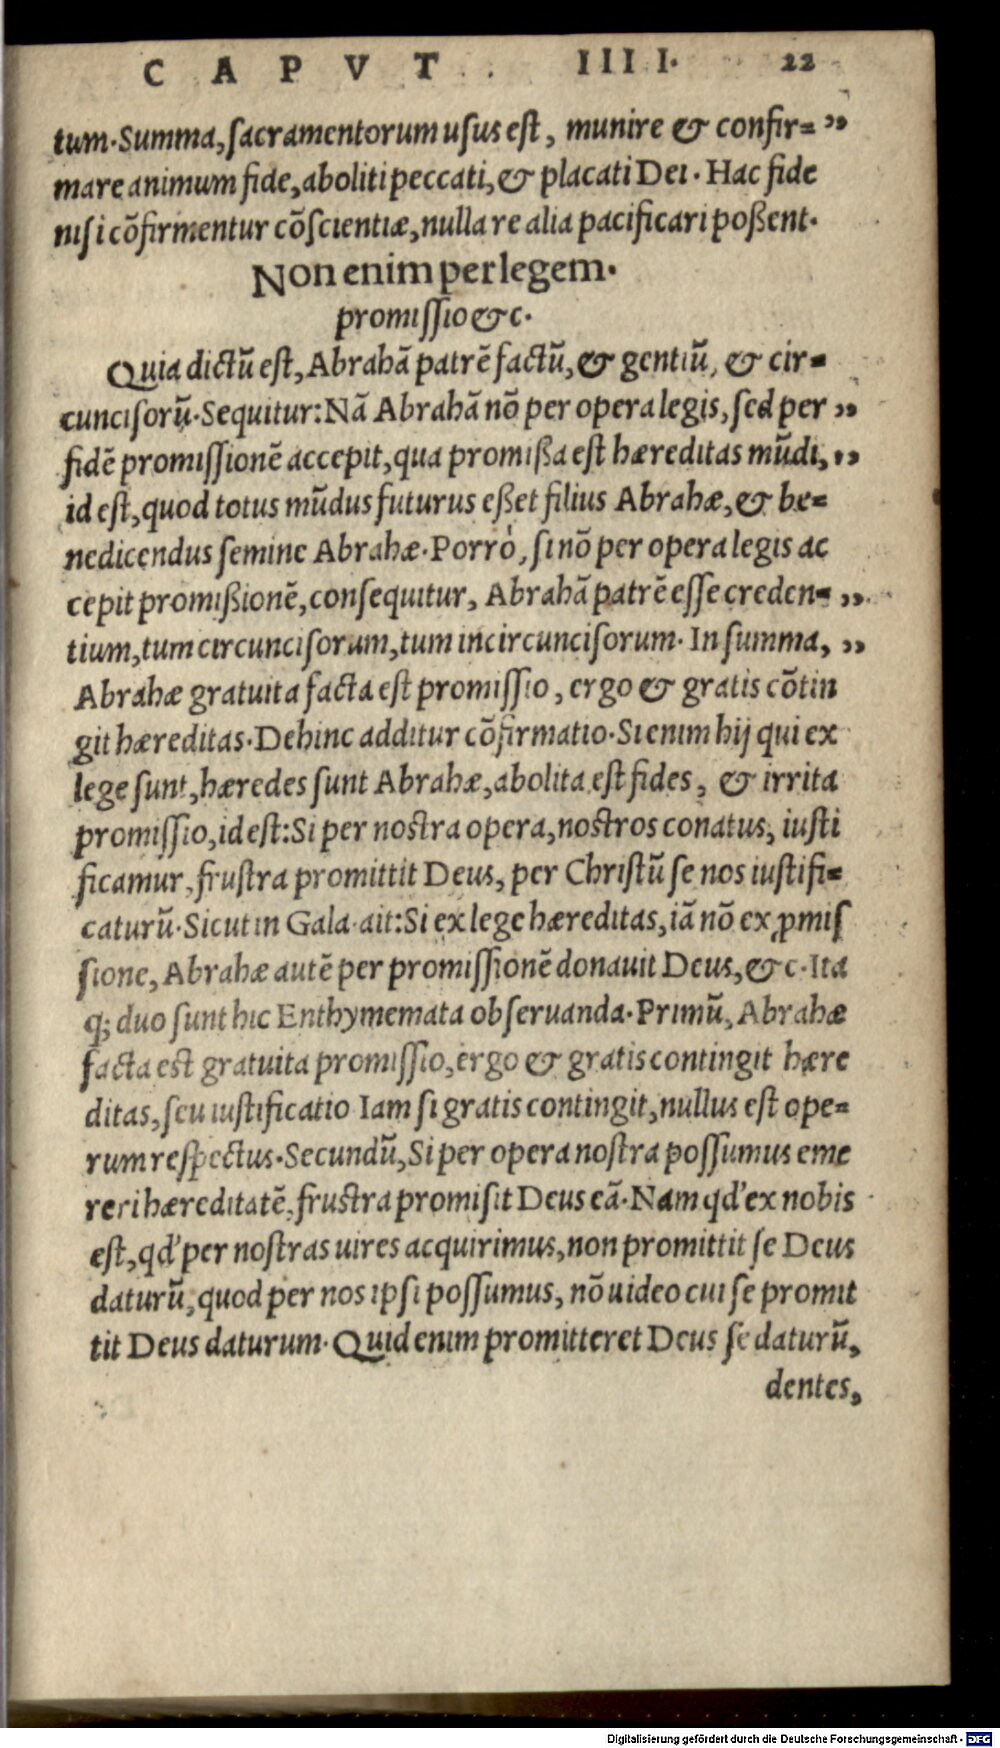 CAPVT. IIII. 22
tum. Summa, sacramentorum usus est, munire & confir= ”
mare animum fide, aboliti peccati, & placati Dei. Hac fide
nisi cõfirmentur cõscientiæ, nulla re alia pacificari poßent.
Non enim per legem.
promissio &c.
Quia dictũ est, Abrahã patrẽ factũ, & gentiũ, & cir=
cuncisorũ. Sequitur: Nã Abrahã nõ per opera legis, sed per ”
fidẽ promissionẽ accepit, qua promißa est hæreditas mũdi, ”
id est, quod totus mũdus futurus eßet filius Abrahæ, & be=
nedicendus semine Abrahæ. Porrò, si nõ per opera legis ac
cepit promißionẽ, consequitur, Abrahã patrẽ esse creden= ”
tium, tum circuncisorum, tum incircuncisorum. In summa, ”
Abrahæ gratuita facta est promissio, ergo & gratis cõtin
git hæreditas. Dehinc additur cõfirmatio. Si enim hij qui ex
lege sunt, hæredes sunt Abrahæ, abolita est fides, & irrita
promissio, id est: Si per nostra opera, nostros conatus, iusti
ficamur, frustra promittit Deus, per Christũ se nos iustifi=
caturũ. Sicut in Gala. ait: Si ex lege hæreditas, iã nõ ex ꝓmis
sione, Abrahæ autẽ per promissionẽ donauit Deus, &c. Ita
q; duo sunt hic Enthymemata obseruanda. Primũ, Abrahæ
facta est gratuita promissio, ergo & gratis contingit hære
ditas, seu iustificatio Iam si gratis contingit, nullus est ope=
rum respectus. Secundũ, Si per opera nostra possumus eme
reri hæreditatẽ, frustra promisit Deus eã. Nam qd' ex nobis
est, qd' per nostras uires acquirimus, non promittit se Deus
daturũ, quod per nos ipsi possumus, nõ uideo cui se promit
tit Deus daturum. Quid enim promitteret Deus se daturũ,
dentes,
Digitalisierung gefördert durch die Deutsche Forschungsgemeinschaft - DFG